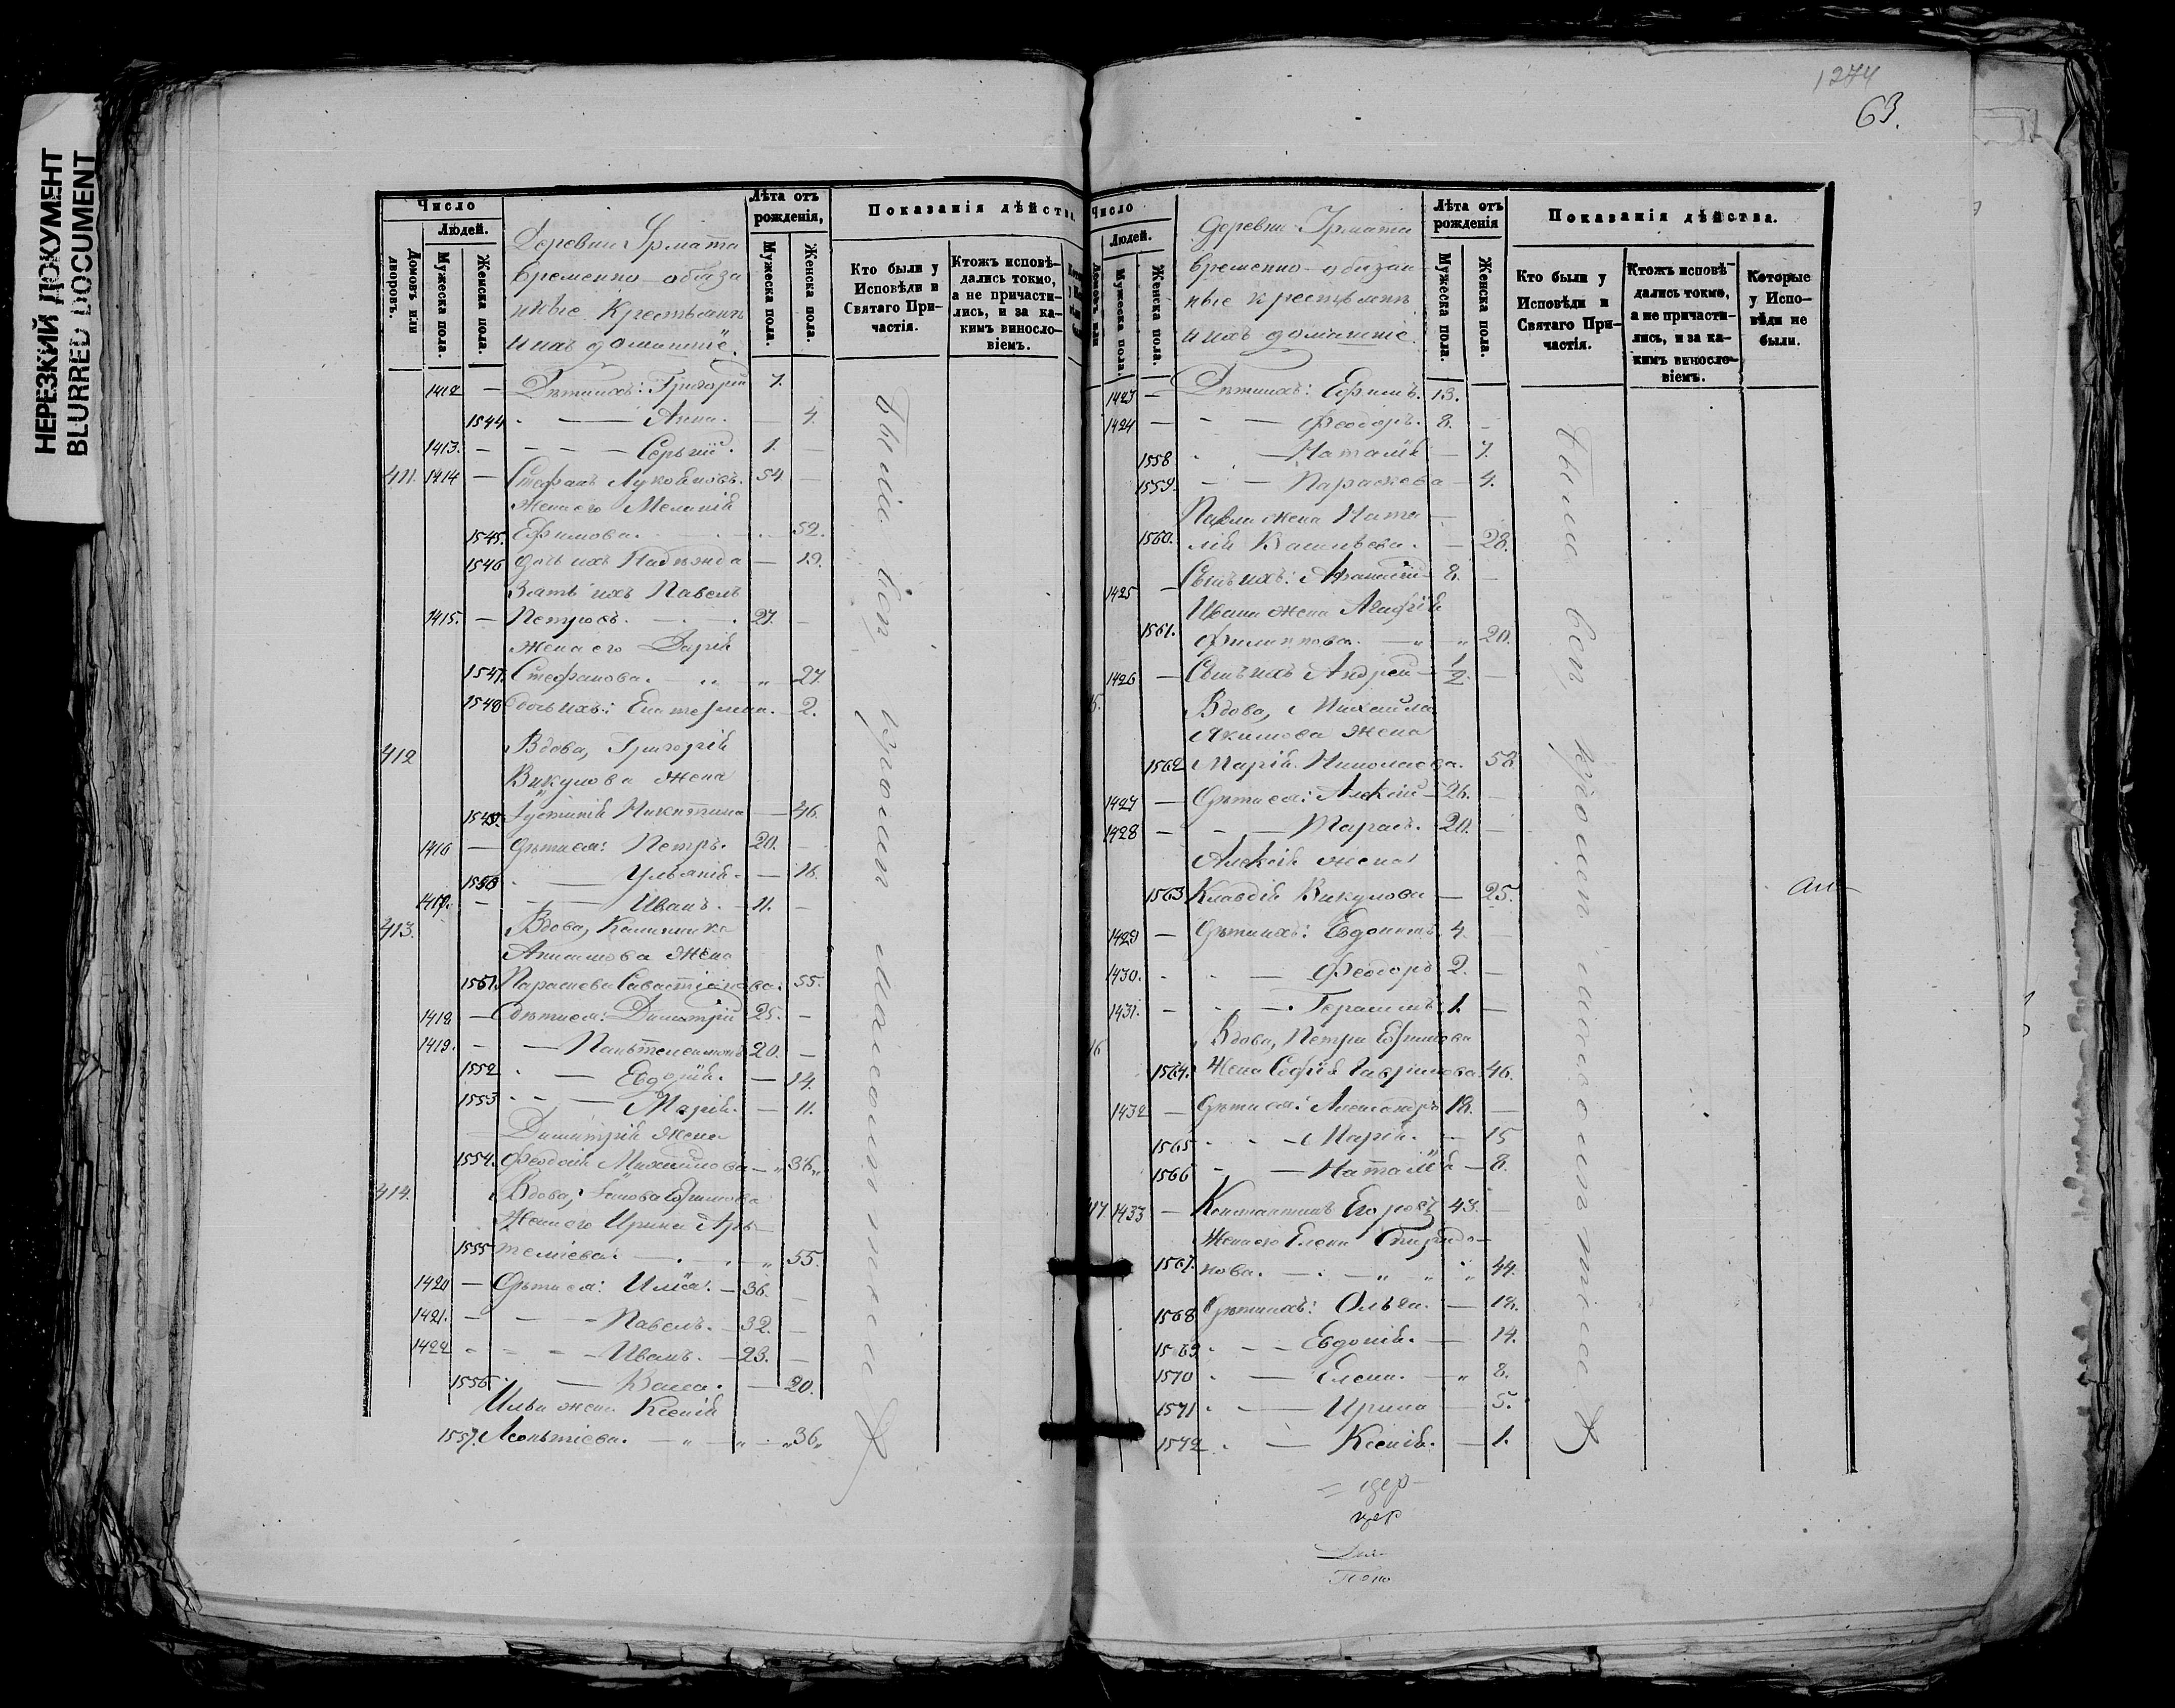 НЕРЕЗКИЙ ДОКУМЕНТ
BLURRED DOCUMENT
Число
Людей.
Домовъ или дворовъ.
Мужеска пола.
Женска пола.
Деревни Ярмата
временно-обяза
нные крестьянъ
и ихъ домашніе.
Лѣта отъ рожденія,
Мужеска пола.
Женска пола.
Показанія дѣйства.
Кто были у Исповѣди и Святаго При-
частія.
Ктожъ исповѣ-
дались токмо,
а не причасти-
лись, и за ка-
кимъ виносло-
віемъ.
1412 — Дѣти ихъ: Григорій 7.
1544 — Анна. — 4.
1413. — Сергій. 1. —
411. 1414 — Стефанъ Луковновъ. 54. —
Жена его Меланія
1545. Ефимова. 52.
1546 дочь ихъ Надежда — 19.
Зять ихъ Павелъ
1415. — Петровъ. 27. —
жена его Дарія
1547. Стефанова. „ 27
1548 дочь ихъ: Екатерина. — 2.
412 Вдова, Григорія
Викулова жена
1549. Іустинія Никитина — 46.
1416 — дѣти ея: Петръ. 20. —
1550 — Ульянія. — 16.
1417. — Иванъ. — 11. —
413. Вдова, Калинника
жена
1551. Параскева Савастіанова. 55.
1418 — дѣти ея: Димитрій 25. —
1419. — Пантелеимонъ 20. —
1552 — Евдокія. — 14.
1553 — Марія. — 11.
Димитрія жена
1554. Феодосія Михайлова — „ 36„
414. Вдова, Іакова Ефимова
жена его Ирина Арте-
1555 меліева. „ 55.
1420 — дѣти ея: Илія. — 36. —
1421. — Павелъ. — 32. —
1422 — Иванъ. — 23. —
1556 — Васса. — 20.
Ильи жена Ксенія
1557. Леонтіева. — „ — „ „36„
Были вси, кромѣ малолѣтнихъ
1274
63.
Число
Людей.
Домовъ или
Мужеска пола.
Женска пола.
деревни Ярмата
временно-обязан
ные крестьянъ
и ихъ домашніе.
Лѣта отъ рожденія
Мужеска пола.
Женска пола.
Показанія дѣйства.
Кто были у Исповѣди и Святаго При-
частія.
Ктожъ исповѣ-
дались токмо,
а не причасти-
лись, и за ка-
кимъ виносло-
віемъ.
Которые
у Испо-
вѣди не
были.
1423 — Дѣти ихъ: Ефимъ. 13.
1424 — Феодоръ. 8. —
1558 — Наталія — 7.
1559. — Параскева — 4.
Павла жена Ната-
1560. лія Васильева. — 28.
1425 — Сынъ ихъ: Афанасій — 8. —
Ивана жена Агафія
1561. Филиппова. — „ — „ 20.
1426 — Сынъ ихъ Андрей — 1/2. —
5. Вдова, Михаила
Якимова жена
1562 Марія Николаева. 58
1427 — дѣти ея: Алексій — 26. —
1428 — Тарасъ. 20. —
Алексія жена
1563 Клавдія Викулова — 25.
1429 — дѣти ихъ: Евдокимъ 4. —
1430. — Феодоръ 2. —
1431. — Герасимъ 1. —
16 Вдова, Петра Ефимова
1564. жена Софія Гаврилова. 46.
1432 — дѣти ея: Александръ 18. —
1565 — Марія. — 15
1566 — Наталія — 8.
17. 1433 — Константинъ Егоровъ 43. —
жена его Елена Спиридо-
1567. нова. — „ „ „ 44.
1568 дѣти ихъ: Ольга. — 18.
1569 — Евдокія. — 14.
1570 — Елена. — „ 8.
1571 — Ирина — 5.
1572 — Ксенія. — 1.
Были вси, кромѣ малолѣтнихъ